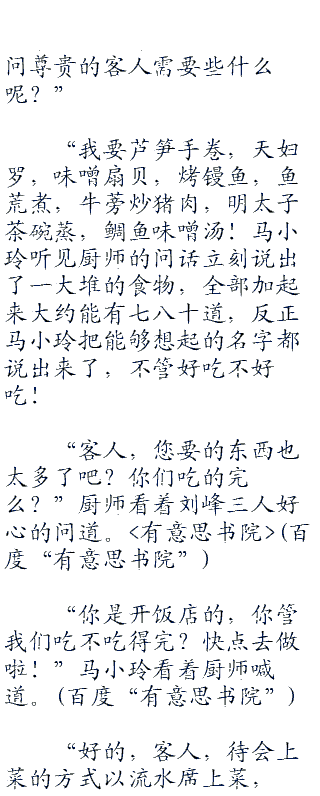 问尊贵的客人需要些什么
呢？”
“我要芦笋手卷，天妇
罗，味噌扇贝，烤镘鱼，鱼
荒煮，牛蒡炒猪肉，明太子
茶碗蒸，鲷鱼味噌汤！马小
玲听见厨师的问话立刻说出
了一大堆的食物，全部加起
来大约能有七八十道，反正
马小玲把能够想起的名字都
说出来了，不管好吃不好
吃！
“客人，您要的东西也
太多了吧？你们吃的完
么？”厨师看着刘峰三人好
心的问道。<有意思书院>(百
度“有意思书院”)
“你是开饭店的，你管
我们吃不吃得完？快点去做
啦！”马小玲看着厨师喊
道。(百度“有意思书院”)
“好的，客人，待会上
菜的方式以流水席上菜，